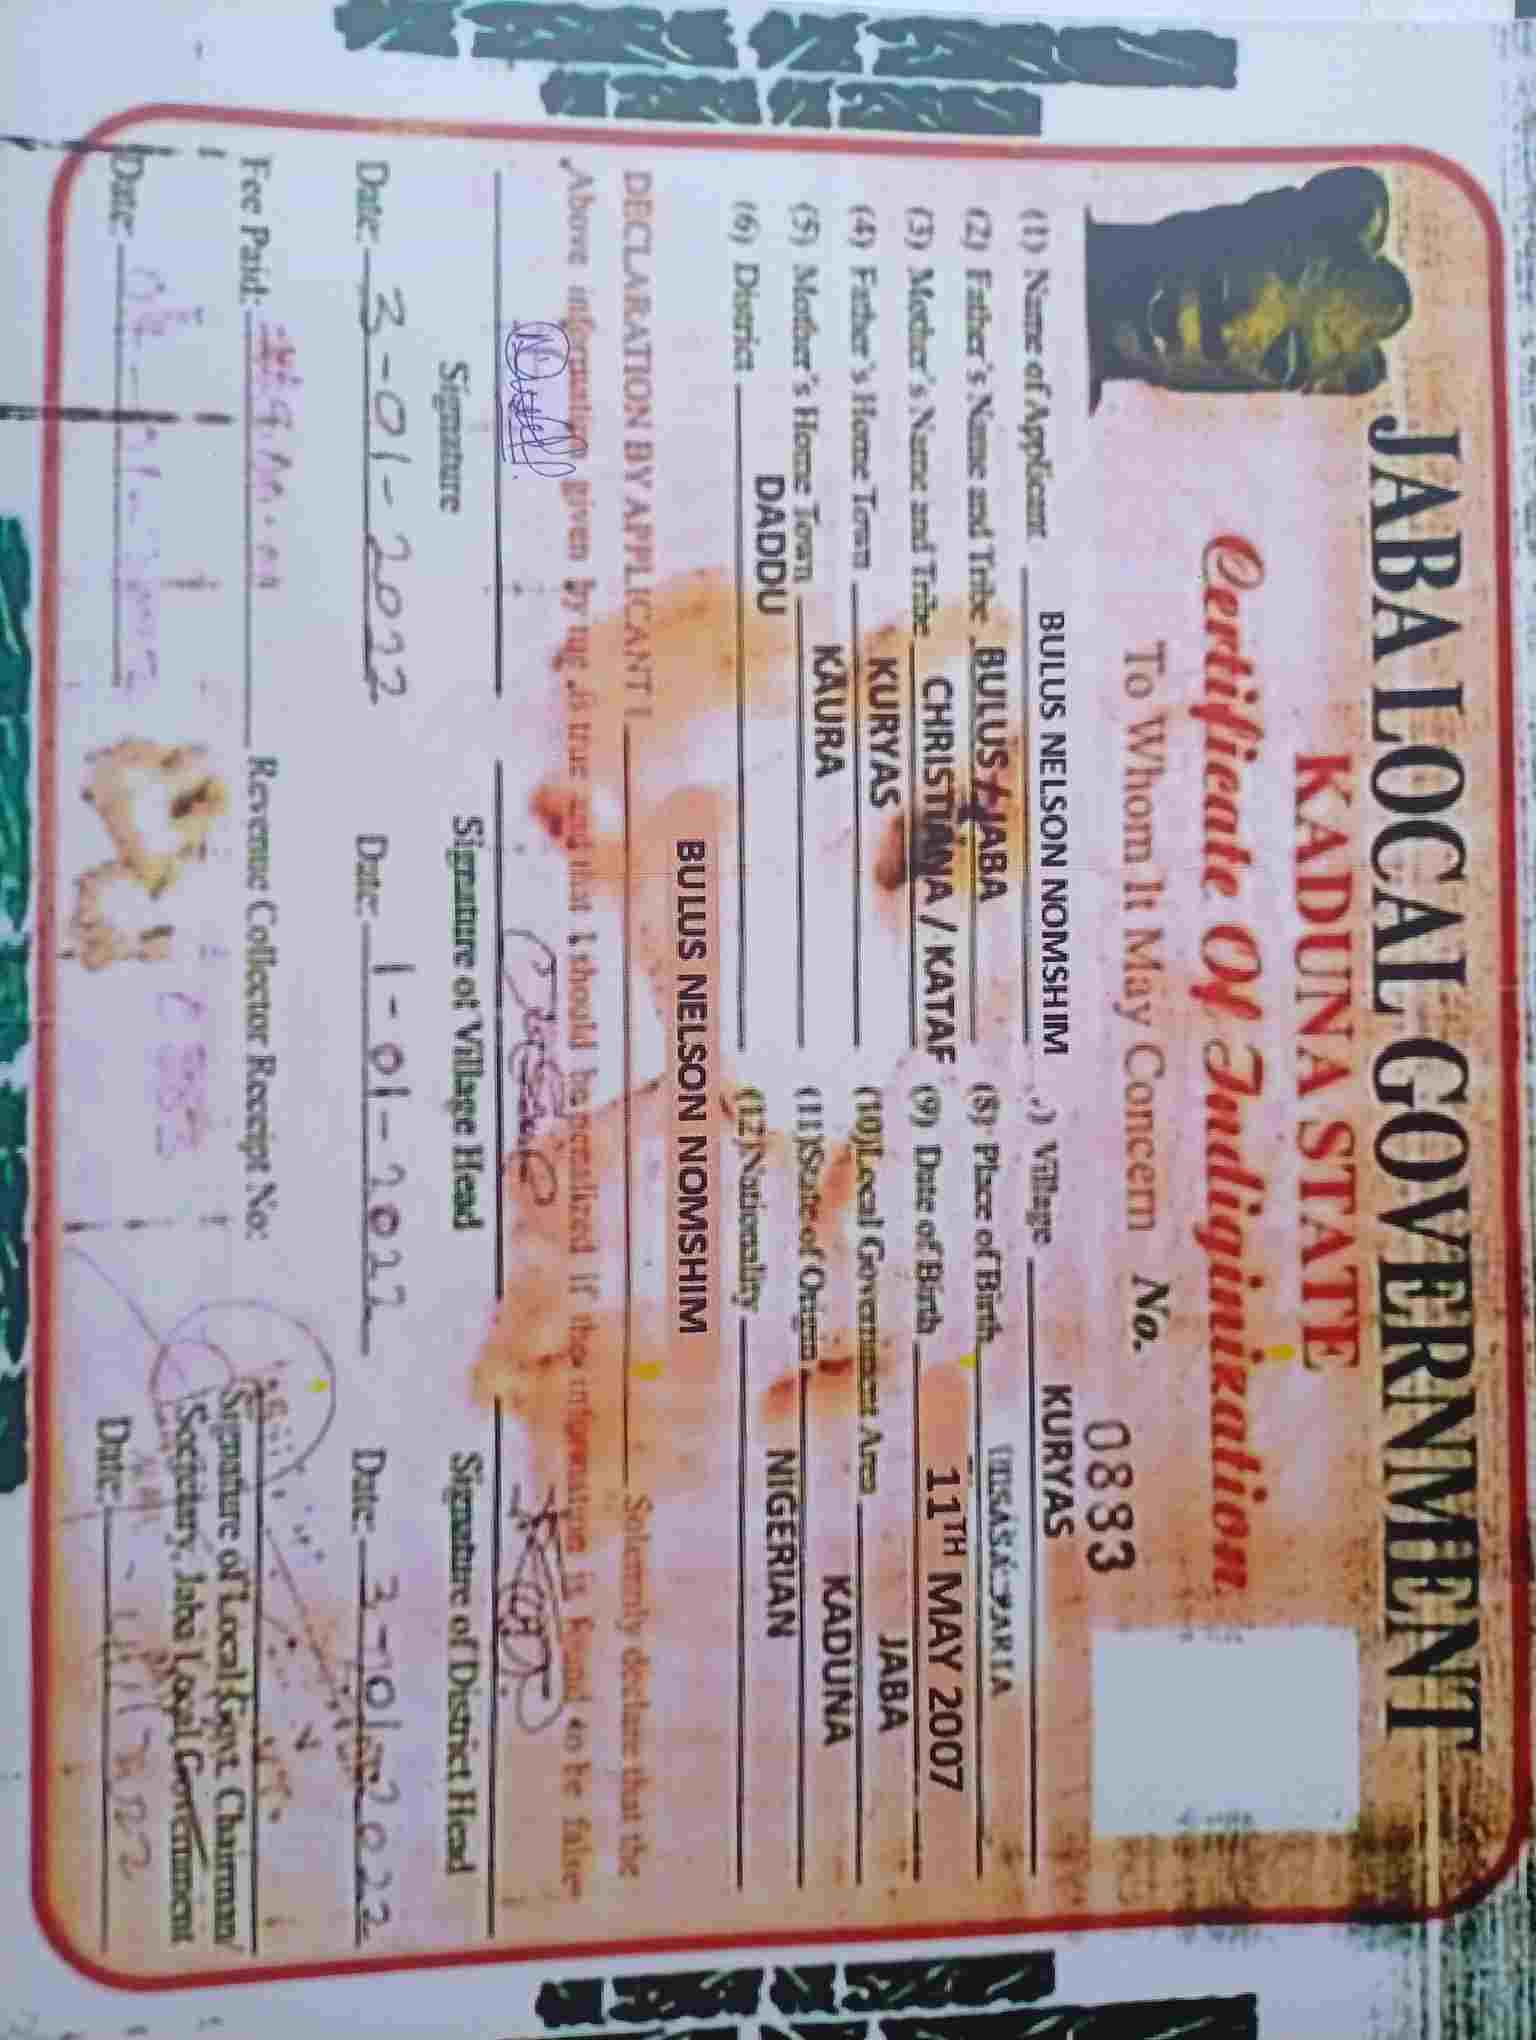 JABA LOCAL GOVERNMENT
KADUNA STATE
Certificate Of Indiginization
To Whom It May Concern No. 0893
(1) Name of Applicant BULUS NELSON NOMSHIM
(2) Father's Name and Tribe BULUS / JABA
(3) Mother's Name and Tribe CHRISTIANA / KATAF
(4) Father's Home Town KURYAS
(5) Mother's Home Town KAURA
(6) District DADDU
Village KURYAS
(8) Place of Birth
(9) Date of Birth 11TH MAY 2007
(10) Local Government Area JABA
(11) State of Origin KADUNA
(12) Nationality NIGERIAN
DECLARATION BY APPLICANT I BULUS NELSON NOMSHIM Solemnly declare that the
Above information given by me is true and that I should be penalized if the information is found to be false
Signature
Signature of Village Head
Signature of District Head
Date: 3-01-2022
Date: 1-01-2022
Date: 3-01-2022
Fee Paid:
Revenue Collector Receipt No:
Signature of Local Govt. Chairman/
Secretary, Jaba Local Government
Date:
Date: